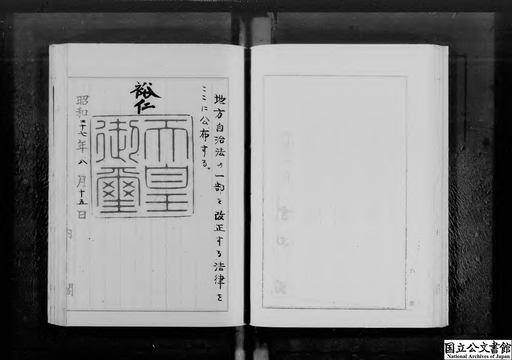 地方自治法の一部を改正する法律を
ここに公布する。
裕仁
天皇
御璽
昭和二十七年八月十五日
内閣
国立公文書館
National Archives of Japan